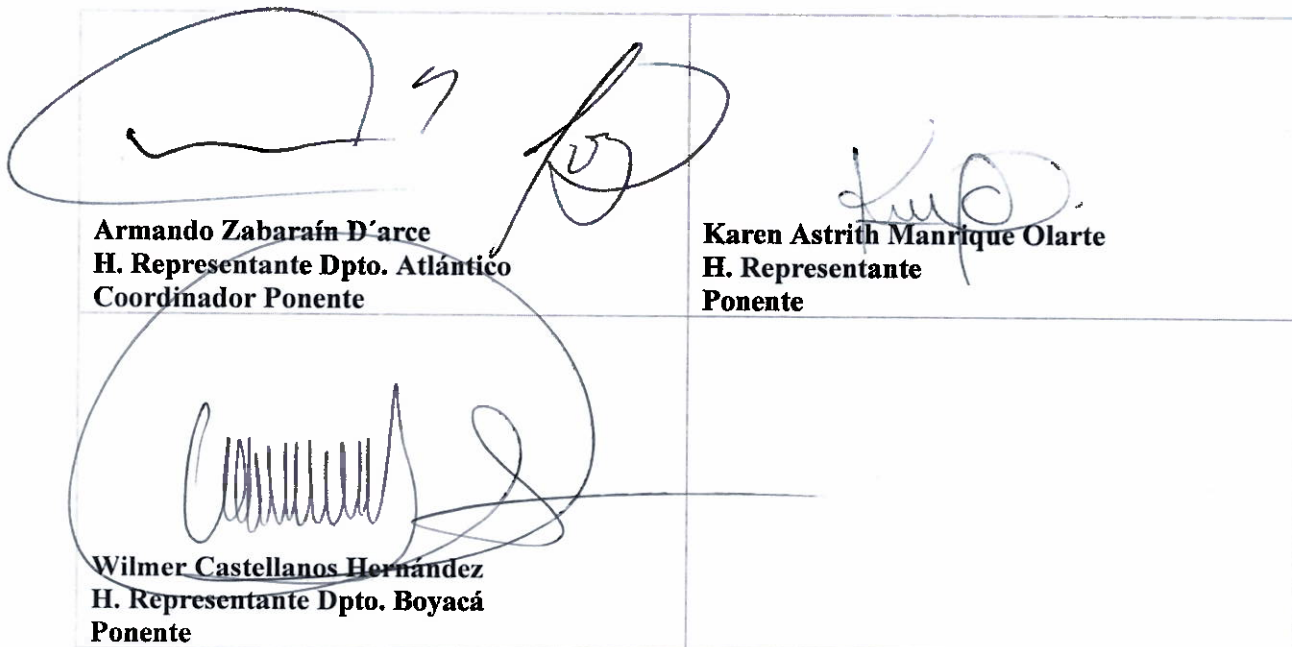 Armando Zabaraín D´arce
H. Representante Dpto. Atlántico
Coordinador Ponente
Karen Astrith Manrique Olarte
H. Representante
Ponente
Wilmer Castellanos Hernández
H. Representante Dpto. Boyacá
Ponente